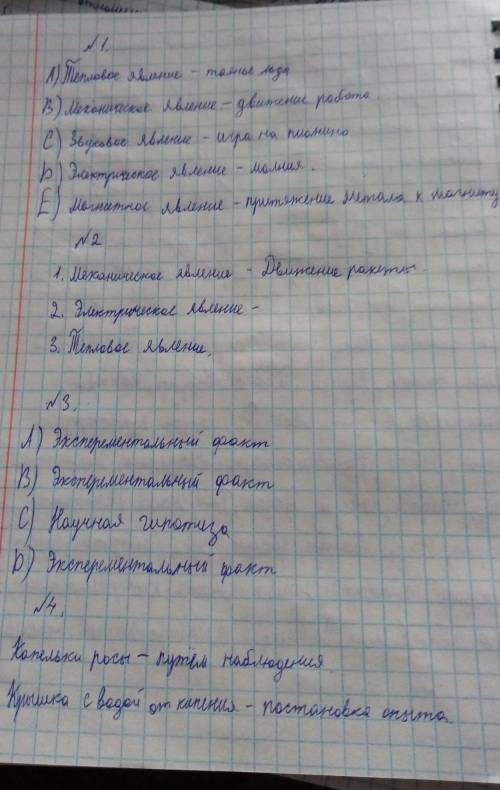 №1.
А) Тепловое явление – таяние льда
В) Механическое явление – движение робота
С) Звуковое явление – игра на пионино
D) Электрическое явление – молния.
Е) Магнетное явление – притяжение метала к магниту
№2
1. Механическое явления – Движение ракеты
2. Электрическое явление –
3. Тепловое явление.
№3.
А) Эксперементальный факт
В) Эксперементальный факт
С) Научная гипотиза
D) Эксперементальный факт
№4.
Капельки росы – путём наблюдения
Крышка с водой от кипения – постановка опыта